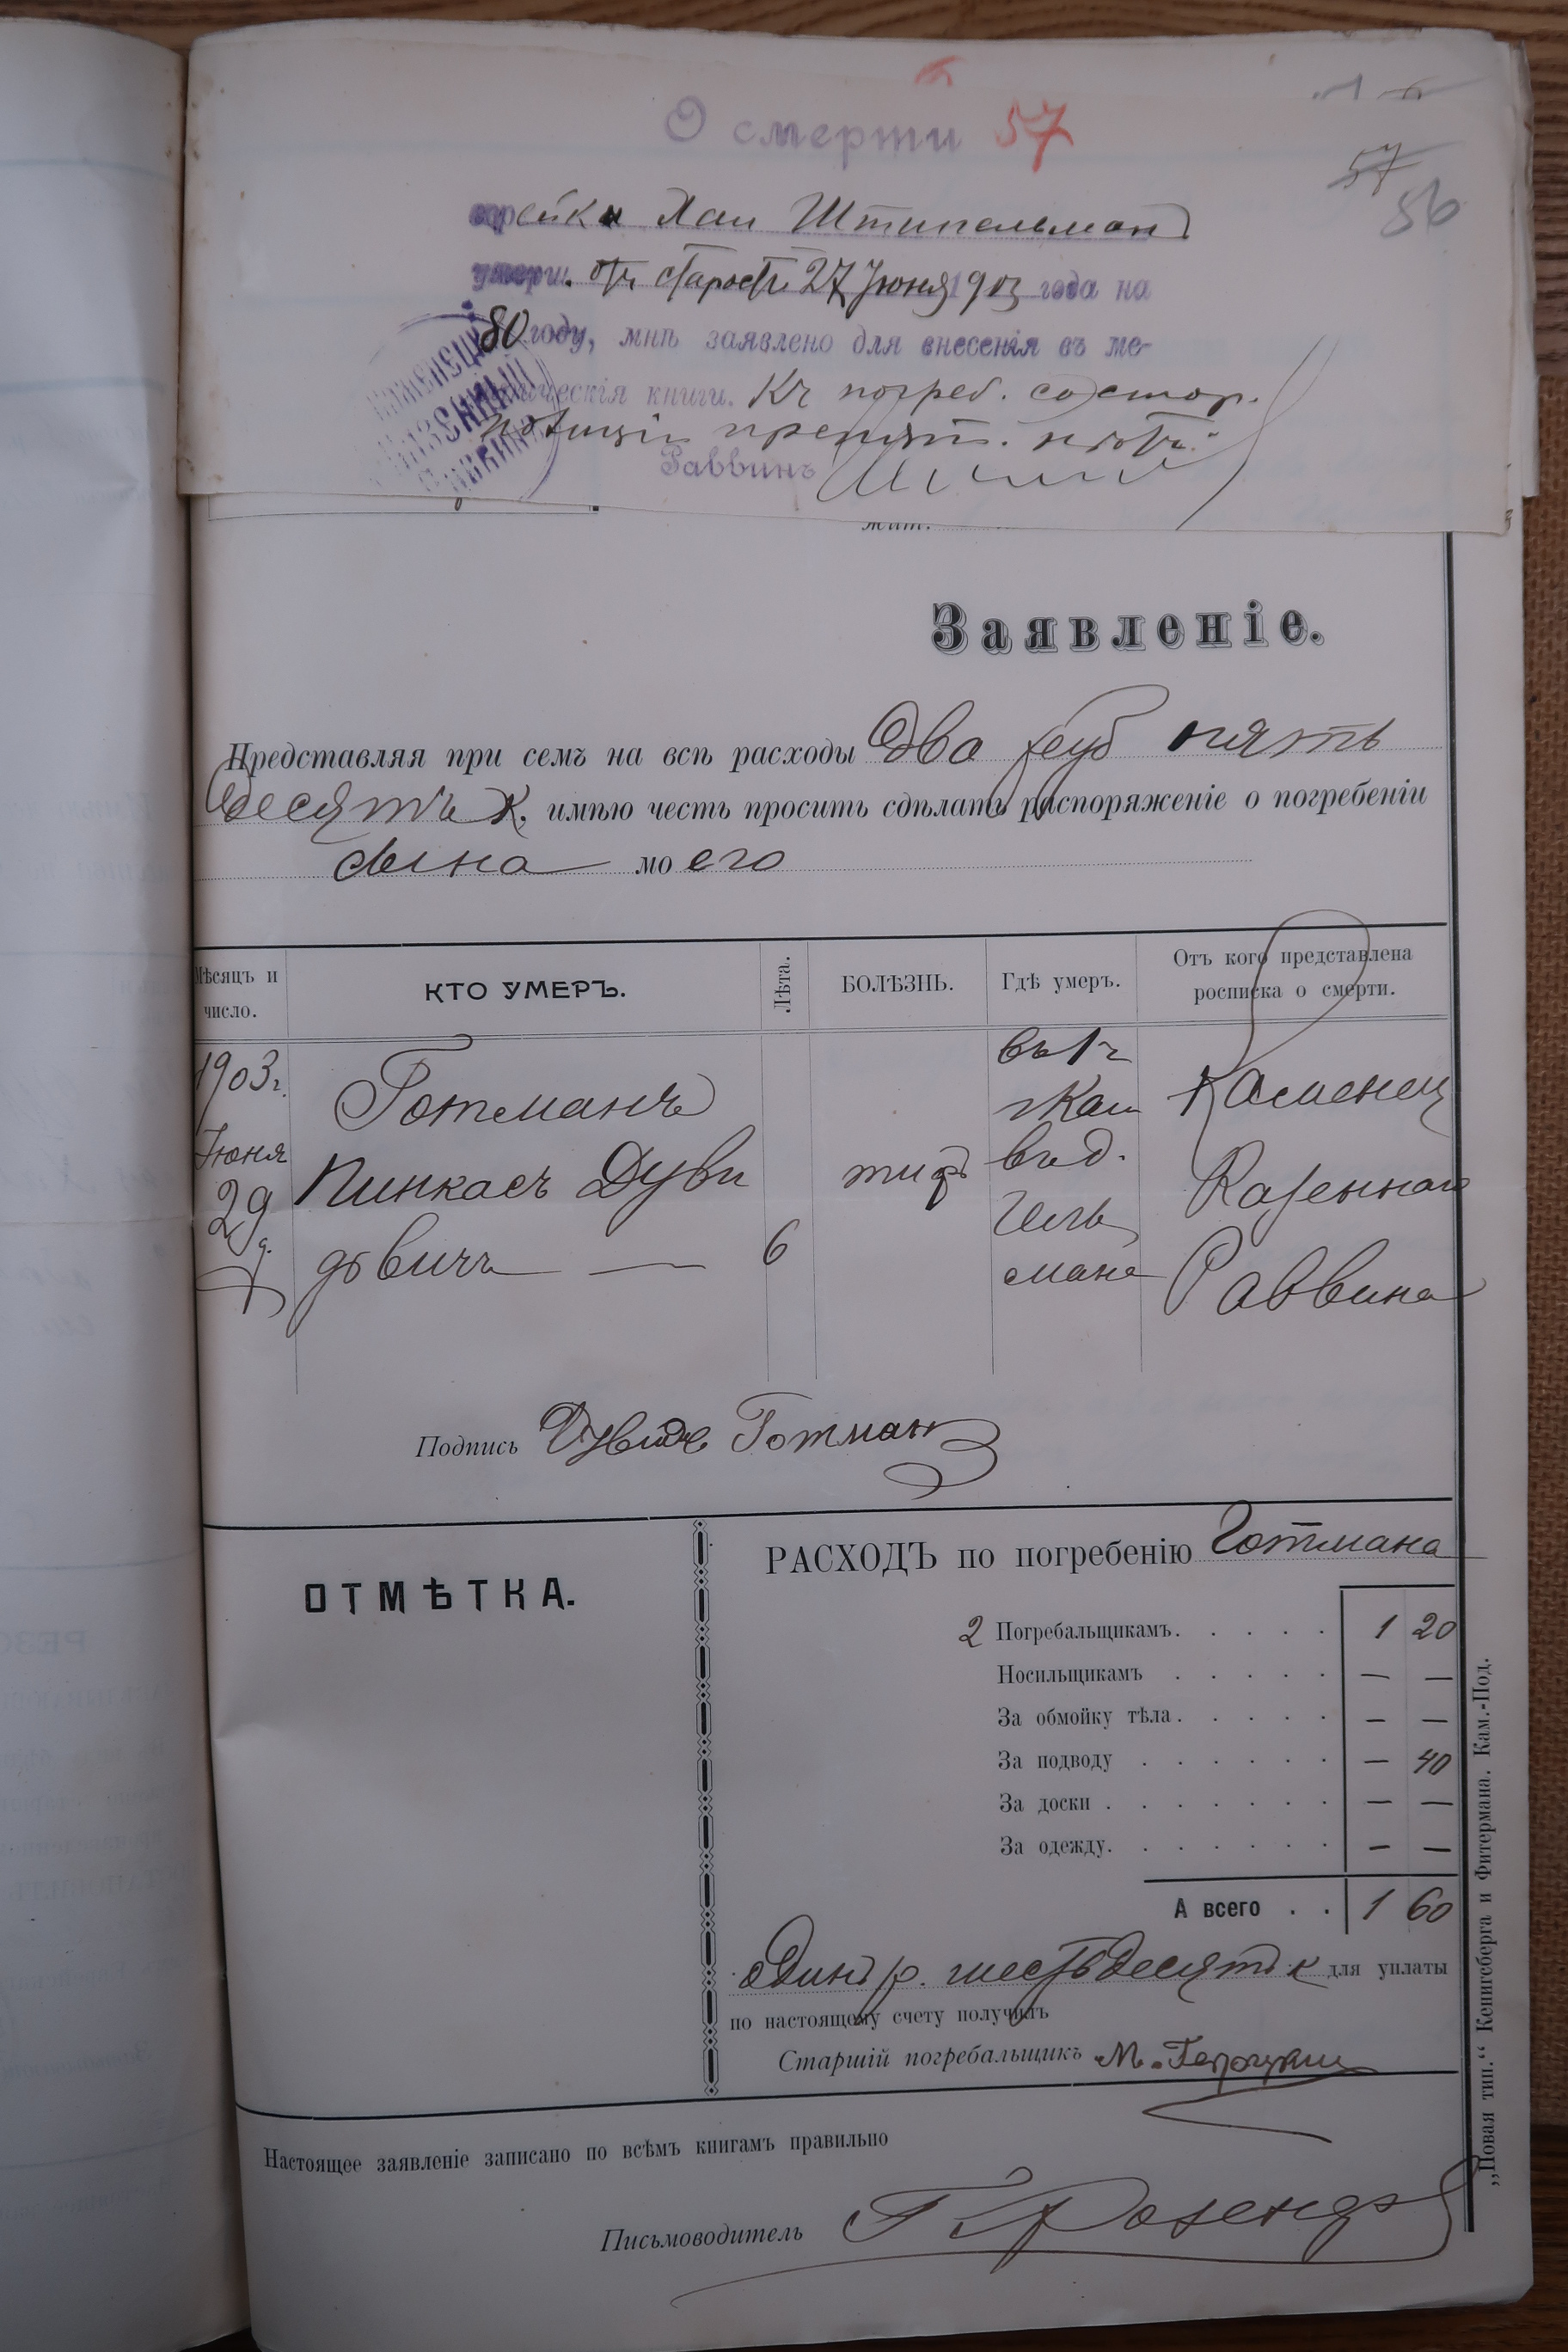 О смерти 57
57
56
еврейки Хаи Штипельман
умерш. отъ старости 27 Іюня 1903 года на
80 году, мнѣ заявлено для внесенія въ ме-
трическія книги. Къ погреб. со стор.
полиціи препятст. нѣтъ.
Раввинъ
Заявленіе.
Представляя при семъ на всѣ расходы Два руб пять
десятъ к, имѣю честь просить сдѣлать распоряженіе о погребеніи
сына моего
Мѣсяцъ и число. КТО УМЕРЪ. Лѣта. БОЛѢЗНЬ. Гдѣ умеръ. Отъ кого представлена росписка о смерти.
1903 г. Готманъ въ г Каменец
Іюня Пинкасъ Дуви тифъ въ д. Казеннаго
29 д. довичъ — 6 Гельмана Раввина
Подпись Дувидъ Готман
ОТМѢТКА.
РАСХОДЪ по погребенію Готмана
2 Погребальщикамъ. 1 20
Носильщикамъ — —
За обмойку тѣла. — —
За подводу — 40
За доски — —
За одежду. — —
А всего 1 60
одинъ р. шестьдесятъ к для уплаты
по настоящему счету получилъ
Старшій погребальщикъ М.
Настоящее заявленіе записано по всѣмъ книгамъ правильно
Письмоводитель
„Новая тип.“ Кенигсберга и Фитермана. Кам.-Под.